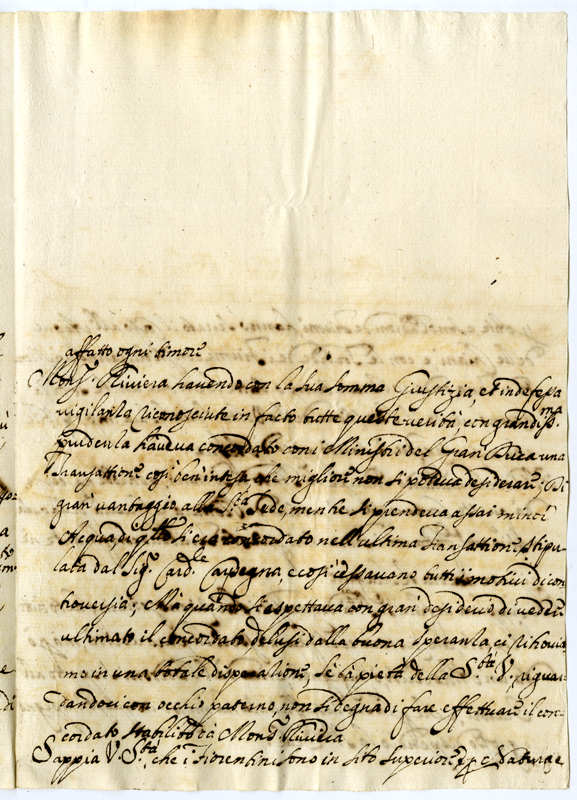 affatto ogni timore
Mons.r Riviera havendo con la sua somma Giustizia, et indefessa
vigilanza riconosciute in facto tutte queste verità, e con grandiss.ma
prudenza haveva concordato con i Ministri del Gran Duca una
Transattione così ben intesa, che migliore non si poteva desiderare; Di
gran vantaggio alla S.ta Sede, mentre si prendeva assai minor
Acqua, di q.llo si era concordato nell'ultima Transattione stipu-
lata dal Sig.r Card.le Carpegna, e così cessavano tutti i motivi di con-
troversia; Mà quando si aspettava con gran desiderio di vedere
ultimato il concordato, delusi dalla buona speranza, ci ritrovia-
mo in una totale disperatione, se la pietà della S.tà V. riguar-
dandoci con occhio paterno, non si degna di fare effettuare il con-
cordato stabilito da Mons.r Riviera
Sappia V. S.tà, che i Fiorentini sono in sito superiore, e